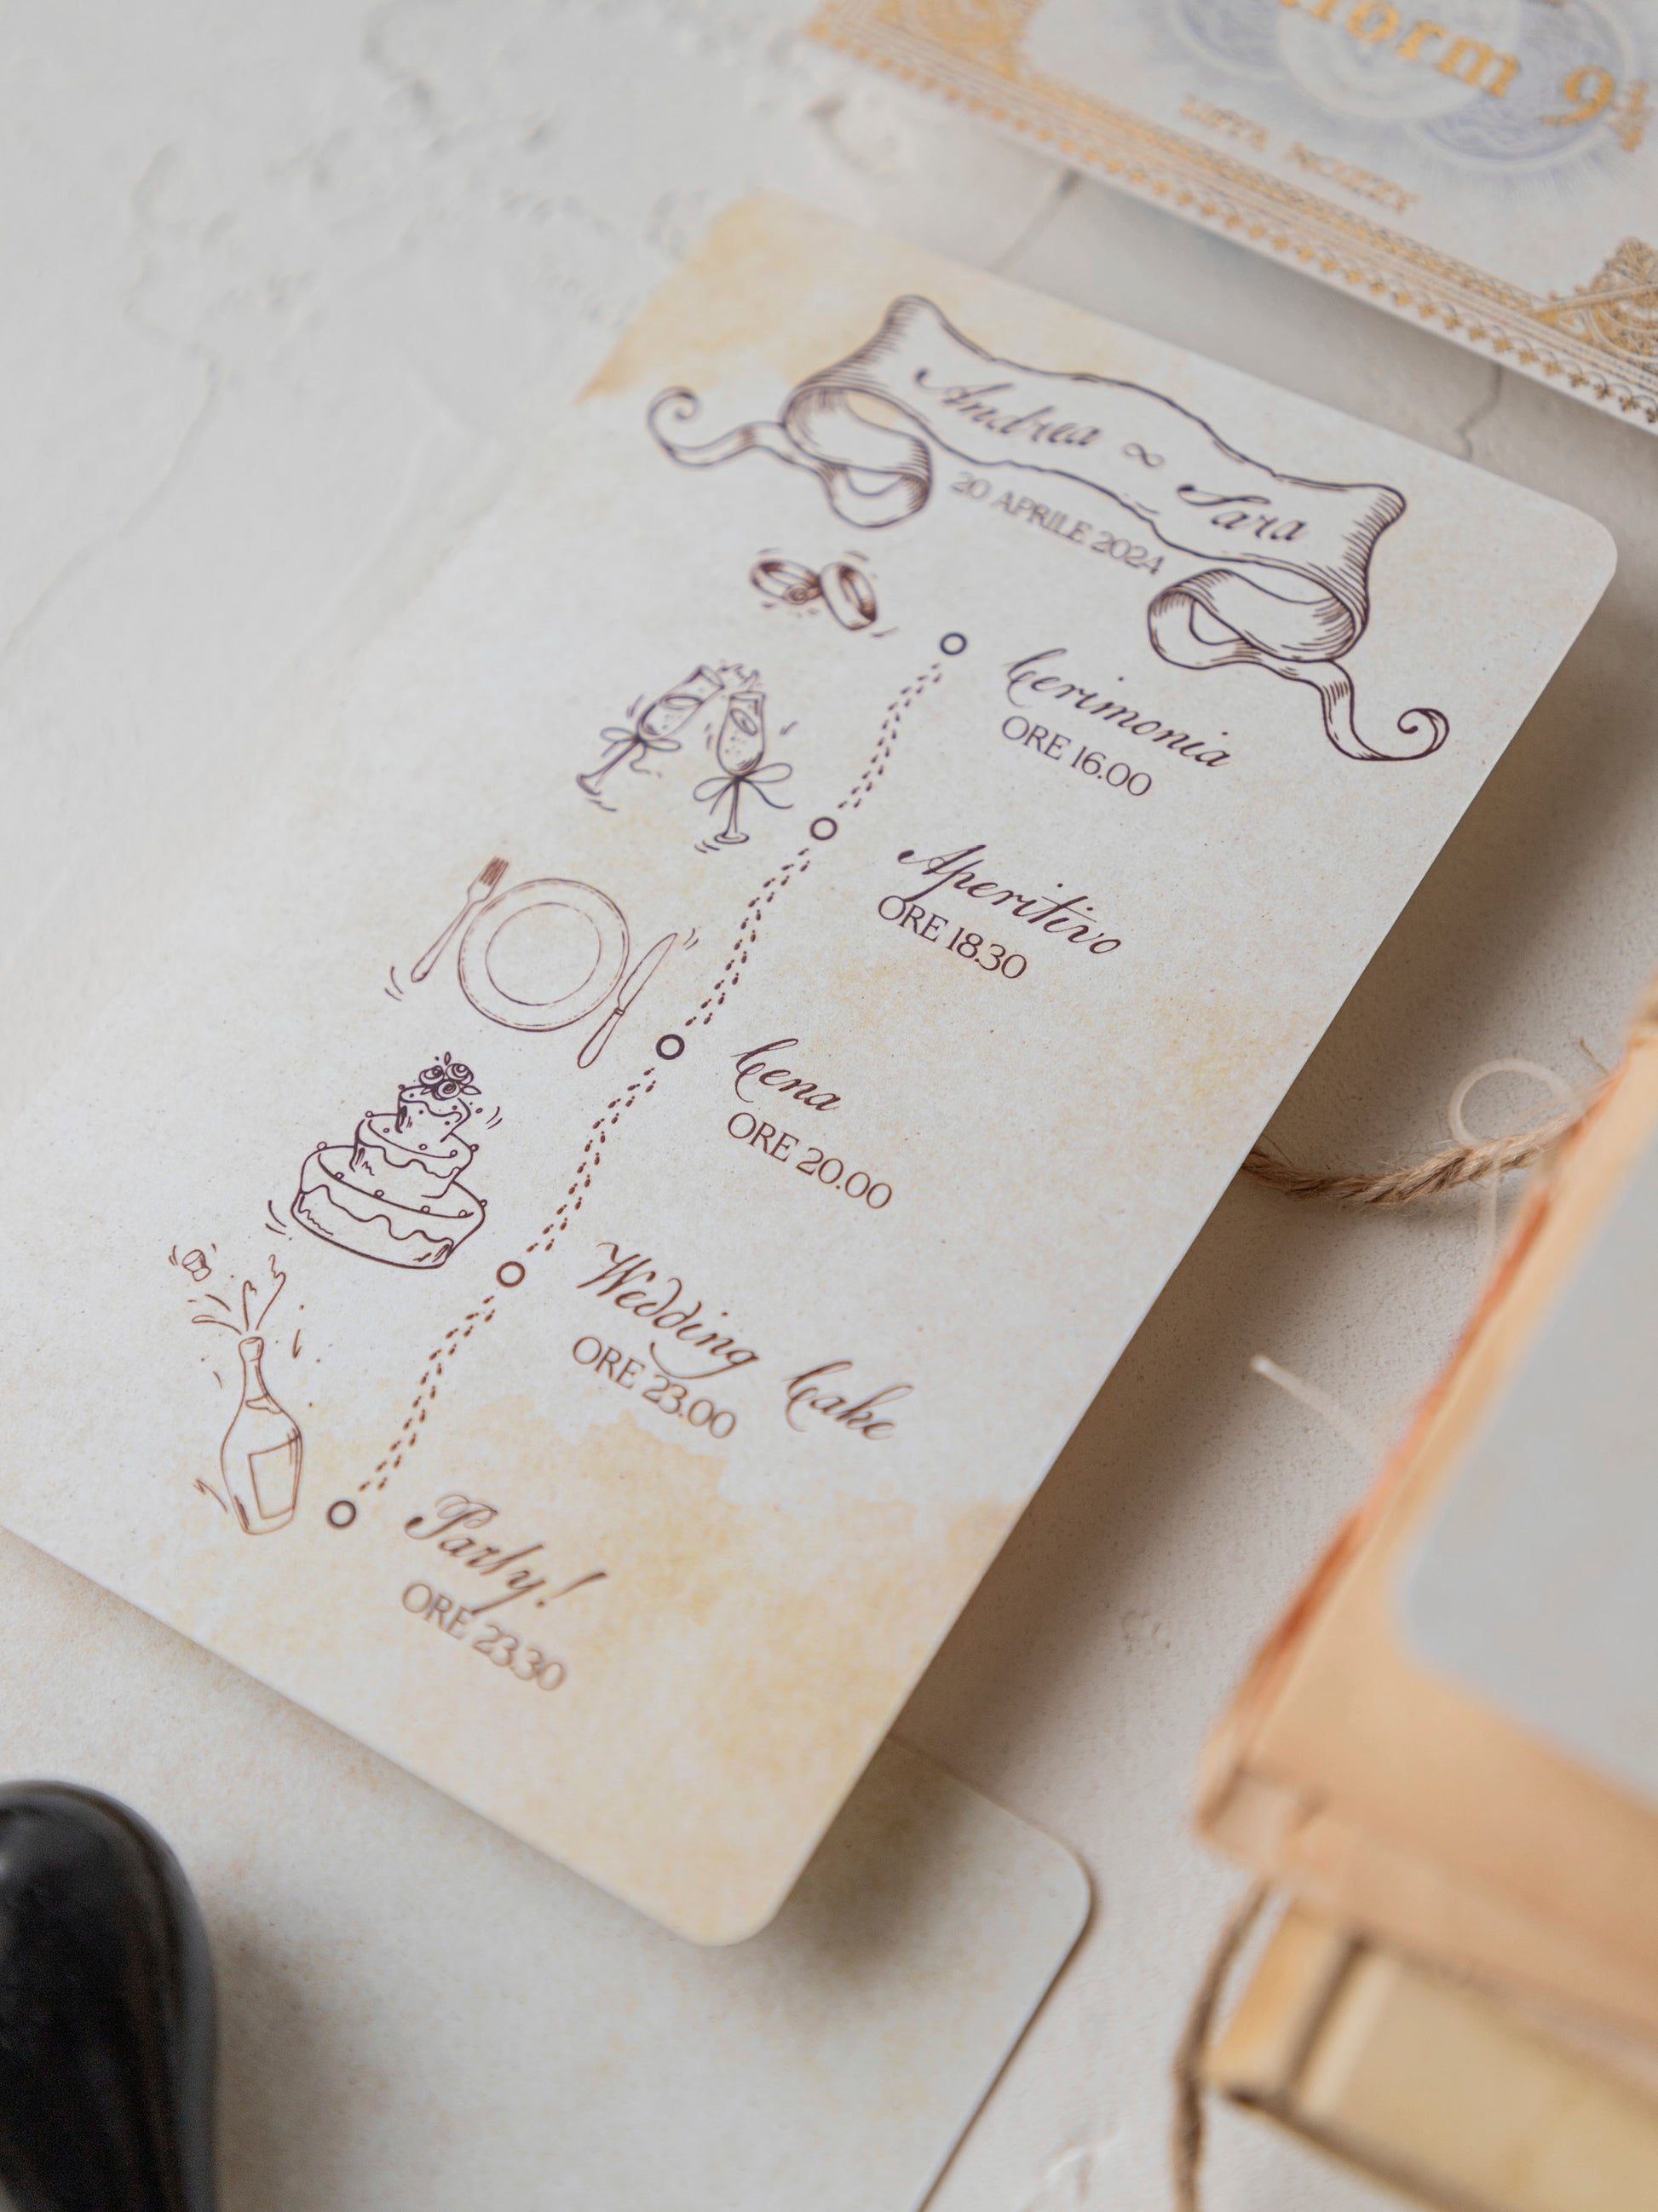 Andrea ∞ Sara
20 APRILE 2024
Cerimonia
ORE 16.00
Aperitivo
ORE 18.30
Cena
ORE 20.00
Wedding Cake
ORE 23.00
Party!
ORE 23.30
9¾